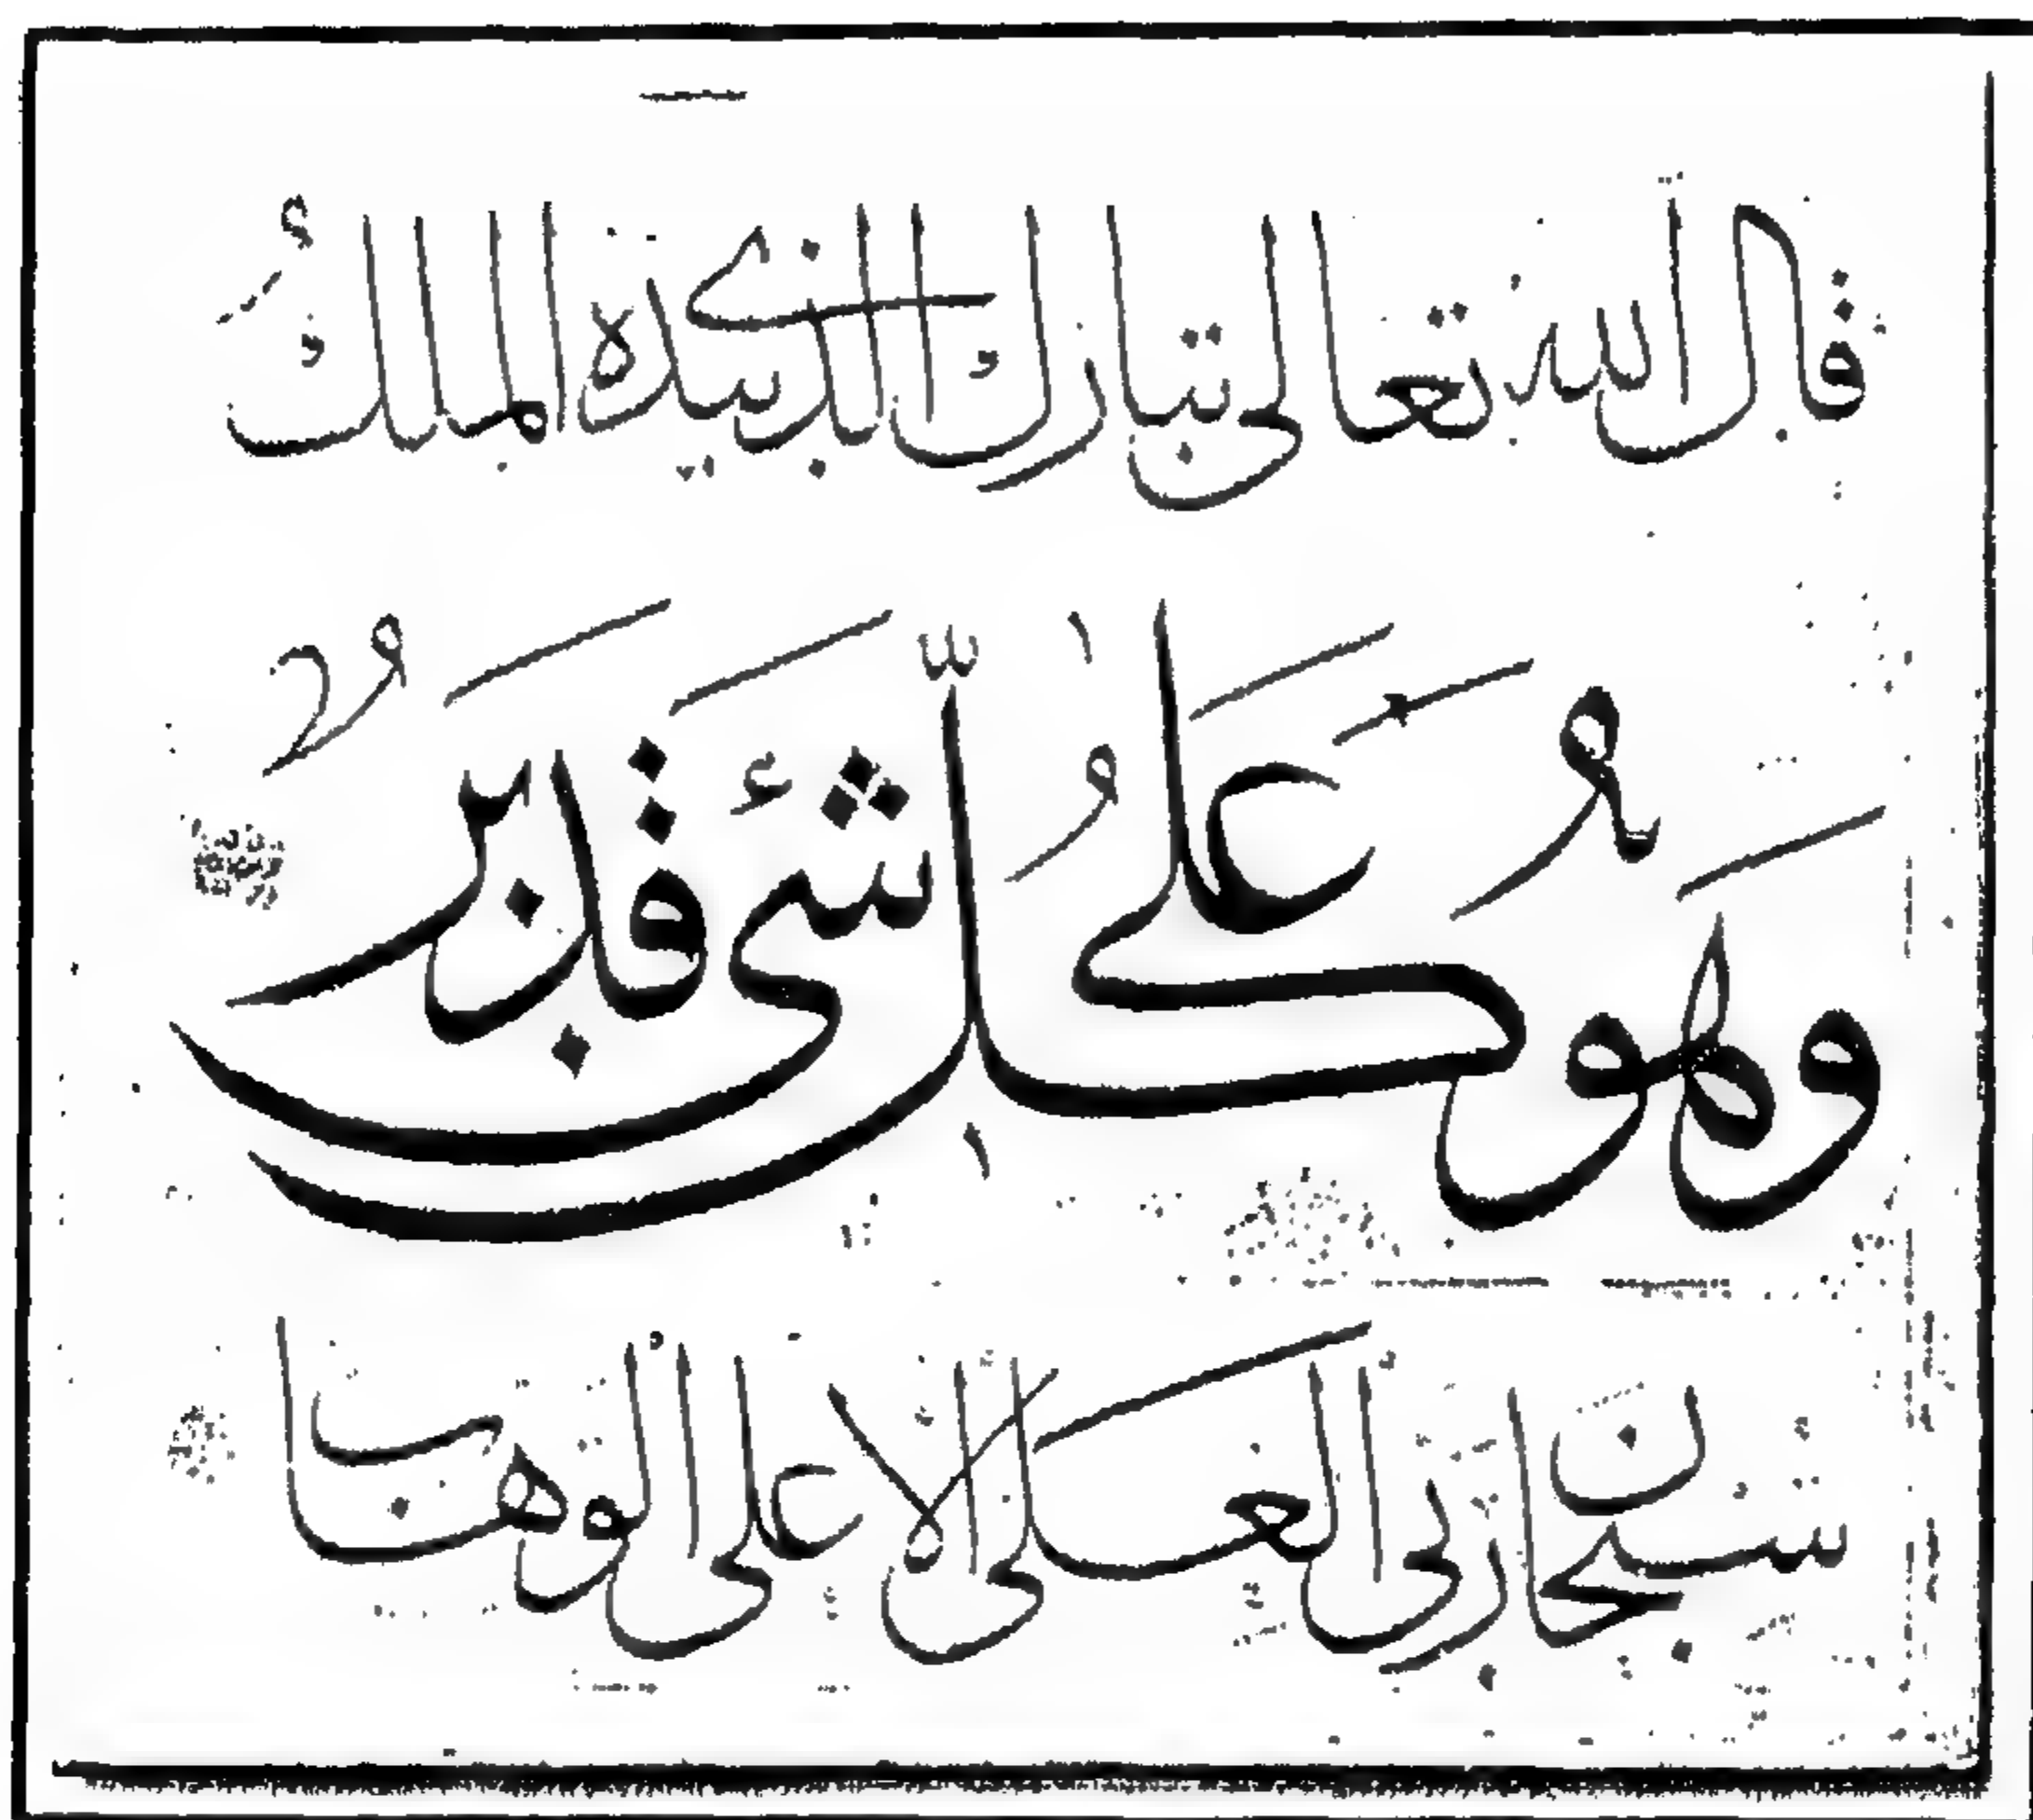 قال الله تعالى تبارك الذي بيده الملك
وهو على كل شئ قدير
سبحان ربي العلي الاعلى الوهاب